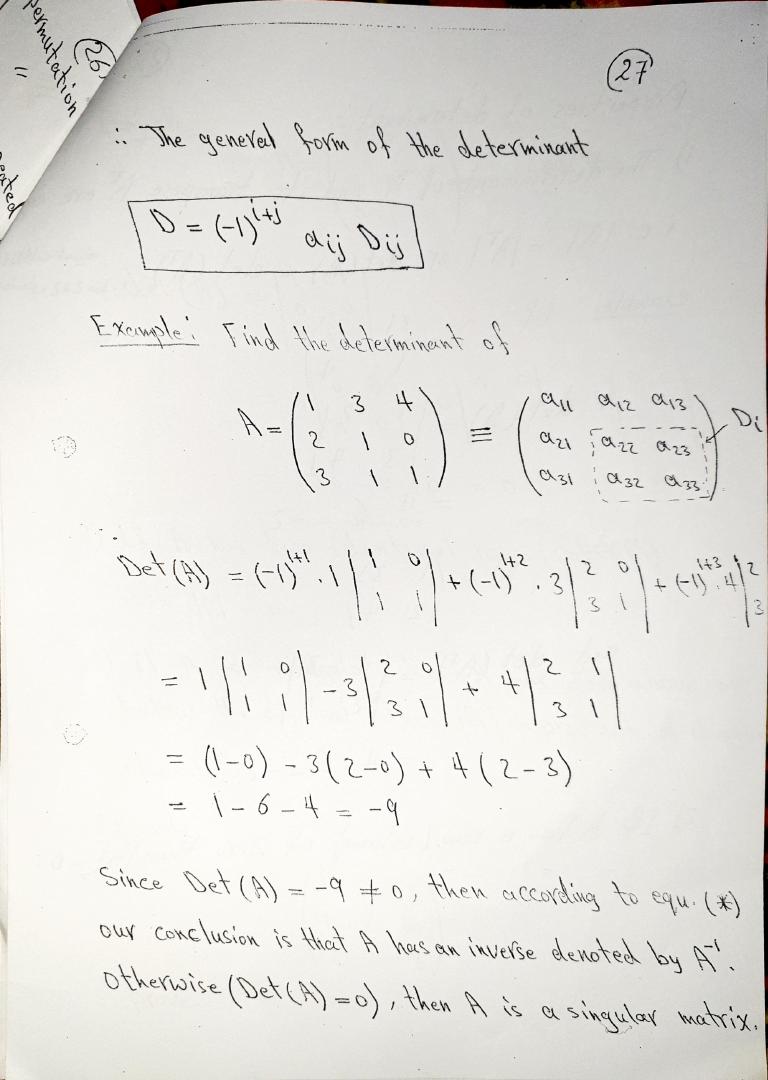 permutation
=
eated
(26)
(27)
∴ The general form of the determinant
D = (-1)^{i+j} a_{ij} D_{ij}
Example: Find the determinant of
A = \begin{pmatrix} 1 & 3 & 4 \\ 2 & 1 & 0 \\ 3 & 1 & 1 \end{pmatrix} ≡ \begin{pmatrix} a_{11} & a_{12} & a_{13} \\ a_{21} & a_{22} & a_{23} \\ a_{31} & a_{32} & a_{33} \end{pmatrix} D_i
Det(A) = (-1)^{1+1} . 1 \begin{vmatrix} 1 & 0 \\ 1 & 1 \end{vmatrix} + (-1)^{1+2} . 3 \begin{vmatrix} 2 & 0 \\ 3 & 1 \end{vmatrix} + (-1)^{1+3} . 4 | 2 3
= 1 \begin{vmatrix} 1 & 0 \\ 1 & 1 \end{vmatrix} - 3 \begin{vmatrix} 2 & 0 \\ 3 & 1 \end{vmatrix} + 4 \begin{vmatrix} 2 & 1 \\ 3 & 1 \end{vmatrix}
= (1-0) - 3(2-0) + 4(2-3)
= 1 - 6 - 4 = -9
Since Det(A) = -9 ≠ 0, then according to equ. (*)
our conclusion is that A has an inverse denoted by A^{-1}.
Otherwise (Det(A) = 0), then A is a singular matrix.